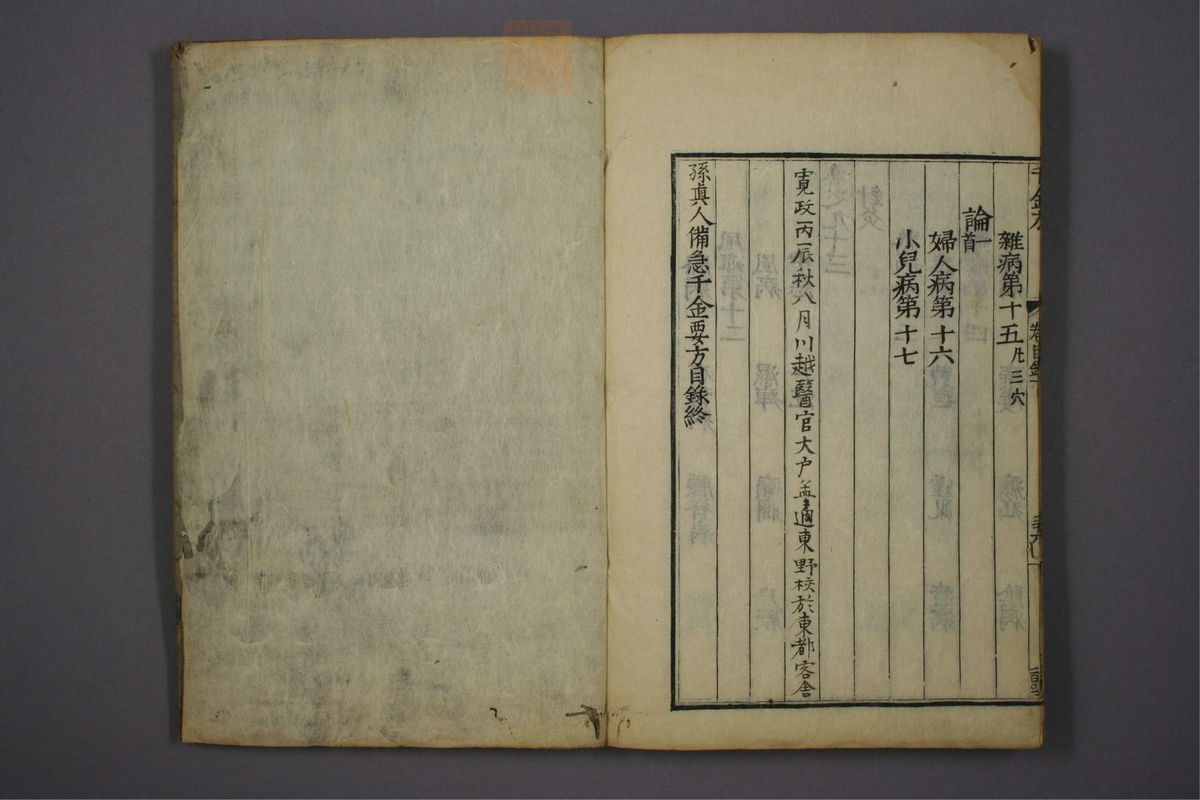 雜病第十五凡三穴
論一首
婦人病第十六
小兒病第十七
寛政丙辰秋八月川越醫官大戸孟適東野校於東都客舎
孫真人備急千金要方目錄終